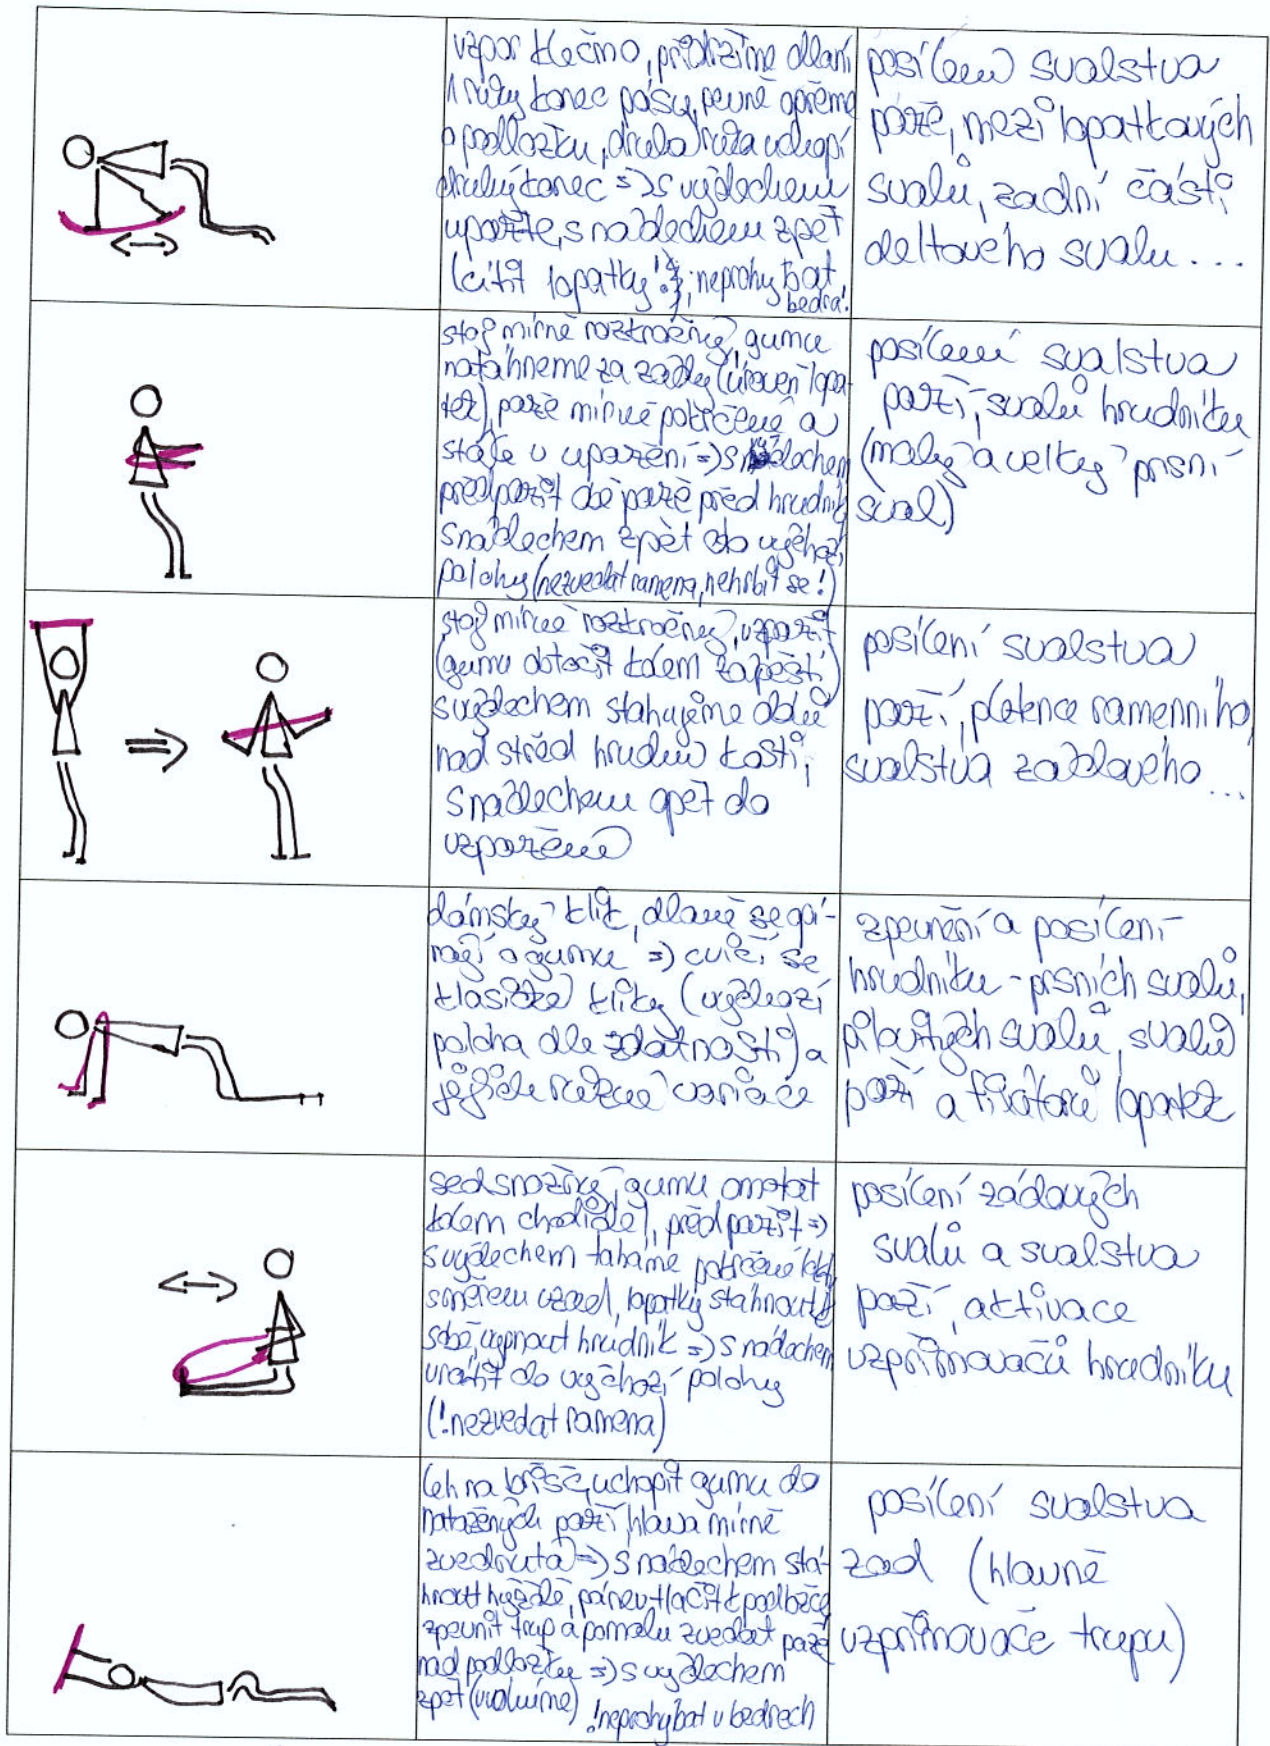 vzpor klečmo, přidržíme dlaní
1 ruky konec pásu, pevně opřeme
o podložku, druhá ruka uchopí
druhý konec => s výdechem
upažte, s nádechem zpět
(cítit lopatky!); neprohýbat
bedra!
posílení svalstva
paže, mezilopatkových
svalů, zadní části
deltového svalu...
stoj mírně rozkročný, gumu
natáhneme za zády (úroveň lopa-
tek), paže mírně pokrčené a
stále v upažení => s dechem
předpažit obě paže před hrudník
s nádechem zpět do výchozí
polohy (nezvedat ramena, nehrbit se!)
posílení svalstva
paží, svalů hrudníku
(malý a velký prsní
sval)
stoj mírně rozkročný, vzpažit
(gumu dotočit kolem zápěstí)
s výdechem stahujeme dolů
nad střed hrudní kosti,
s nádechem opět do
vzpažení
posílení svalstva
paží, pletence ramenního,
svalstva zádového...
dámský klik, dlaně se opí-
rají o gumu => cvičí se
klasické kliky (výchozí
poloha dle zdatnosti) a
jejich různé variace
zpevnění a posílení
hrudníku - prsních svalů,
pilovitých svalů, svalů
paží a fixátorů lopatek
sed snožný, gumu omotat
kolem chodidel, předpažit =>
s výdechem taháme pokrčené lokty
směrem vzad, lopatky stáhnout k
sobě, vypnout hrudník => s nádechem
vrátit do výchozí polohy
(!nezvedat ramena)
posílení zádových
svalů a svalstva
paží, aktivace
vzpřimovačů hrudníku
leh na břiše, uchopit gumu do
natažených paží, hlava mírně
zvednutá => s nádechem stá-
hnout hýždě, pánev tlačit k podložce
zpevnit trup a pomalu zvedat paže
nad podložku => s výdechem
zpět (uvolníme) !neprohýbat v bedrech
posílení svalstva
zad (hlavně
vzpřimovače trupu)